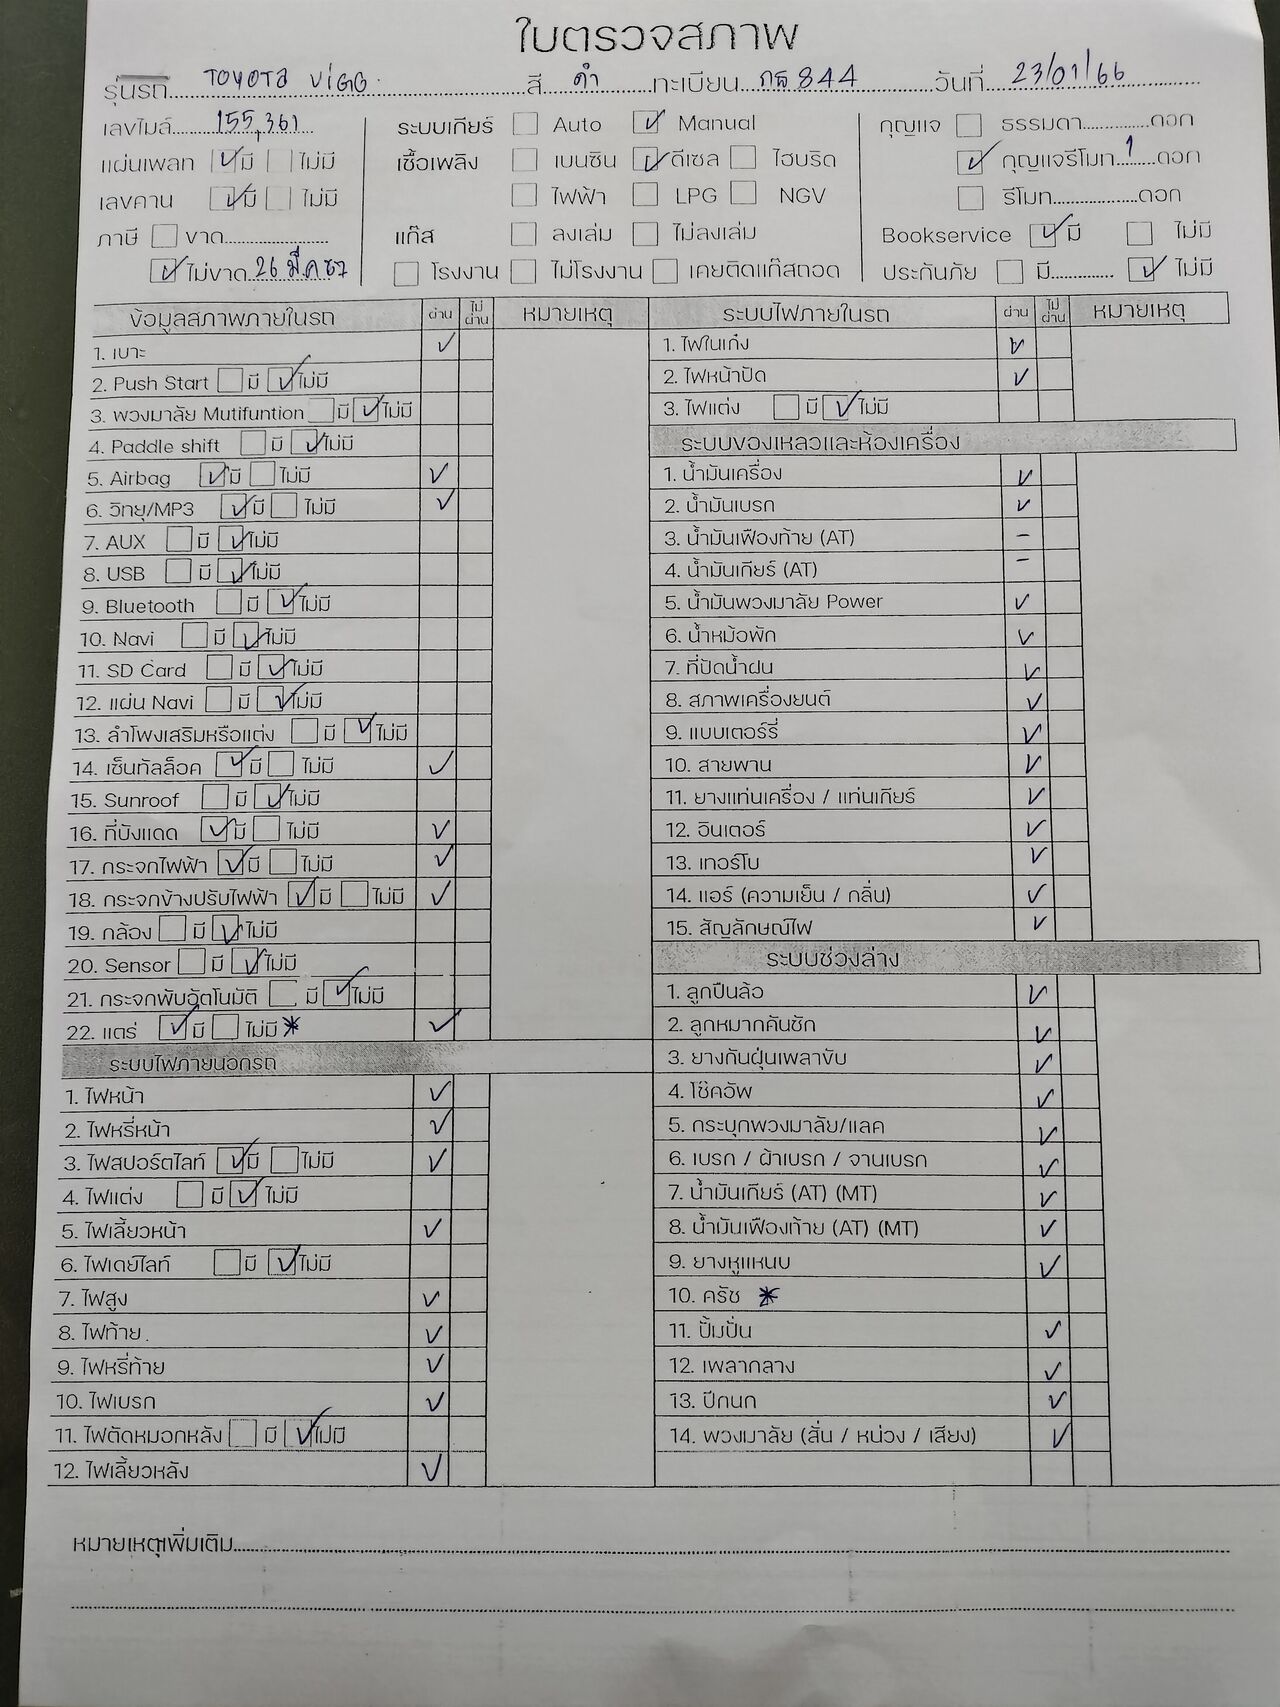 ใบตรวจสภาพ
รุ่นรถ TOYOTA VIGO สี ดำ ทะเบียน กธ 844 วันที่ 23/01/66
เลขไมล์ 155,361 ระบบเกียร์ ☐ Auto ☑ Manual กุญแจ ☐ ธรรมดา ดอก
แผ่นเพลท ☑ มี ☐ ไม่มี เชื้อเพลิง ☐ เบนซิน ☑ ดีเซล ☐ ไฮบริด ☑ กุญแจรีโมท 1 ดอก
เลขคาน ☑ มี ☐ ไม่มี ☐ ไฟฟ้า ☐ LPG ☐ NGV ☐ รีโมท ดอก
ภาษี ☐ ขาด แก๊ส ☐ ลงเล่ม ☐ ไม่ลงเล่ม Bookservice ☑ มี ☐ ไม่มี
☑ ไม่ขาด 26 มี.ค 67 ☐ โรงงาน ☐ ไม่โรงงาน ☐ เคยติดแก๊สถอด ประกันภัย ☐ มี ☑ ไม่มี
ข้อมูลสภาพภายในรถ ผ่าน ไม่ผ่าน หมายเหตุ
1. เบาะ ✓
2. Push Start ☐ มี ☑ ไม่มี
3. พวงมาลัย Mutifuntion ☐ มี ☑ ไม่มี
4. Paddle shift ☐ มี ☑ ไม่มี
5. Airbag ☑ มี ☐ ไม่มี ✓
6. วิทยุ/MP3 ☑ มี ☐ ไม่มี ✓
7. AUX ☐ มี ☑ ไม่มี
8. USB ☐ มี ☑ ไม่มี
9. Bluetooth ☐ มี ☑ ไม่มี
10. Navi ☐ มี ☑ ไม่มี
11. SD Card ☐ มี ☑ ไม่มี
12. แผ่น Navi ☐ มี ☑ ไม่มี
13. ลำโพงเสริมหรือแต่ง ☐ มี ☑ ไม่มี
14. เซ็นทัลล็อค ☑ มี ☐ ไม่มี ✓
15. Sunroof ☐ มี ☑ ไม่มี
16. ที่บังแดด ☑ มี ☐ ไม่มี ✓
17. กระจกไฟฟ้า ☑ มี ☐ ไม่มี ✓
18. กระจกข้างปรับไฟฟ้า ☑ มี ☐ ไม่มี ✓
19. กล้อง ☐ มี ☑ ไม่มี
20. Sensor ☐ มี ☑ ไม่มี
21. กระจกพับอัตโนมัติ ☐ มี ☑ ไม่มี
22. แตร่ ☑ มี ☐ ไม่มี * ✓
ระบบไฟภายนอกรถ
1. ไฟหน้า ✓
2. ไฟหรี่หน้า ✓
3. ไฟสปอร์ตไลท์ ☑ มี ☐ ไม่มี ✓
4. ไฟแต่ง ☐ มี ☑ ไม่มี
5. ไฟเลี้ยวหน้า ✓
6. ไฟเดย์ไลท์ ☐ มี ☑ ไม่มี
7. ไฟสูง ✓
8. ไฟท้าย ✓
9. ไฟหรี่ท้าย ✓
10. ไฟเบรก ✓
11. ไฟตัดหมอกหลัง ☐ มี ☑ ไม่มี
12. ไฟเลี้ยวหลัง ✓
ระบบไฟภายในรถ ผ่าน ไม่ผ่าน หมายเหตุ
1. ไฟในเก๋ง ✓
2. ไฟหน้าปัด ✓
3. ไฟแต่ง ☐ มี ☑ ไม่มี
ระบบของเหลวและห้องเครื่อง
1. น้ำมันเครื่อง ✓
2. น้ำมันเบรก ✓
3. น้ำมันเฟืองท้าย (AT) -
4. น้ำมันเกียร์ (AT) -
5. น้ำมันพวงมาลัย Power ✓
6. น้ำหม้อพัก ✓
7. ที่ปัดน้ำฝน ✓
8. สภาพเครื่องยนต์ ✓
9. แบบเตอร์รี่ ✓
10. สายพาน ✓
11. ยางแท่นเครื่อง / แท่นเกียร์ ✓
12. อินเตอร์ ✓
13. เทอร์โบ ✓
14. แอร์ (ความเย็น / กลิ่น) ✓
15. สัญลักษณ์ไฟ ✓
ระบบช่วงล่าง
1. ลูกปืนล้อ ✓
2. ลูกหมากคันชัก ✓
3. ยางกันฝุ่นเพลาขับ ✓
4. โช๊คอัพ ✓
5. กระบุกพวงมาลัย/แลค ✓
6. เบรก / ผ้าเบรก / จานเบรก ✓
7. น้ำมันเกียร์ (AT) (MT) ✓
8. น้ำมันเฟืองท้าย (AT) (MT) ✓
9. ยางหูแหนบ ✓
10. ครัช *
11. ปั้มปั่น ✓
12. เพลากลาง ✓
13. ปีกนก ✓
14. พวงมาลัย (สั่น / หน่วง / เสียง) ✓
หมายเหตุเพิ่มเติม